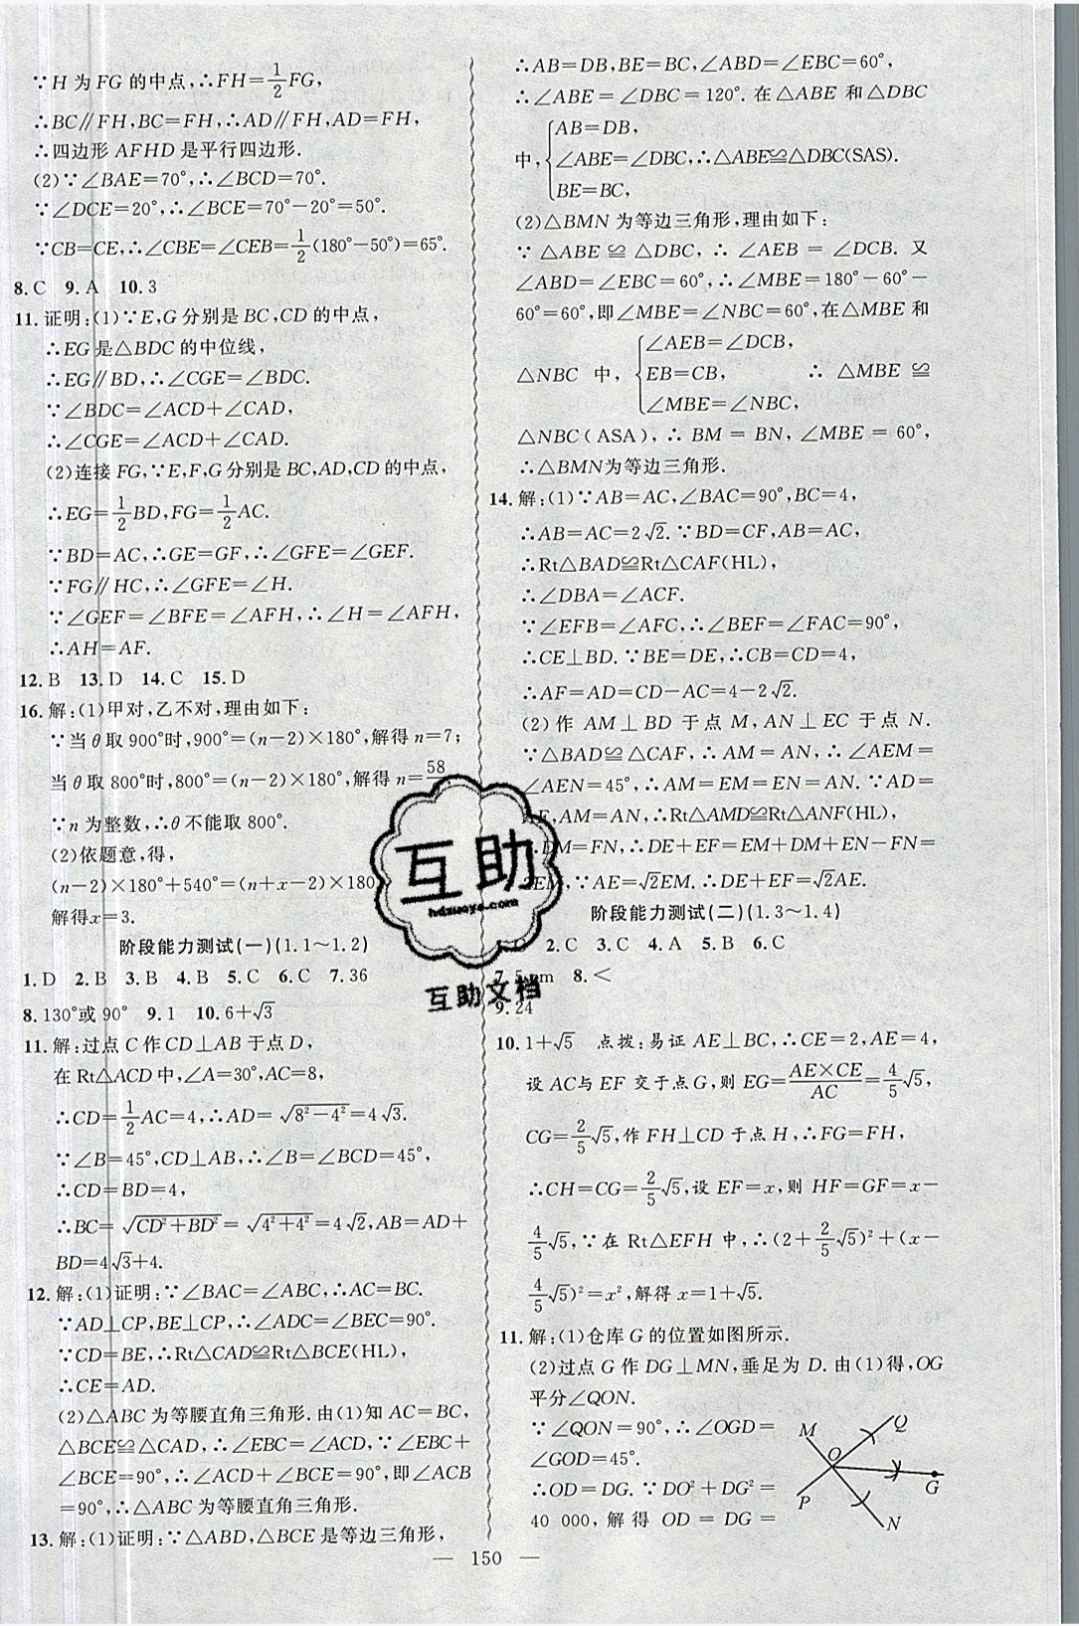 ∵H 为 FG 的中点,∴FH=1/2FG,
∴BC∥FH,BC=FH,∴AD∥FH,AD=FH,
∴四边形 AFHD 是平行四边形.
(2)∵∠BAE=70°,∴∠BCD=70°.
∵∠DCE=20°,∴∠BCE=70°-20°=50°.
∵CB=CE,∴∠CBE=∠CEB=1/2(180°-50°)=65°.
8.C 9.A 10.3
11.证明:(1)∵E,G分别是BC,CD的中点,
∴EG是△BDC的中位线,
∴EG∥BD,∴∠CGE=∠BDC.
∵∠BDC=∠ACD+∠CAD,
∴∠CGE=∠ACD+∠CAD.
(2)连接FG,∵E,F,G分别是BC,AD,CD的中点,
∴EG=1/2BD,FG=1/2AC.
∵BD=AC,∴GE=GF,∴∠GFE=∠GEF.
∵FG∥HC,∴∠GFE=∠H.
∵∠GEF=∠BFE=∠AFH,∴∠H=∠AFH,
∴AH=AF.
12.B 13.D 14.C 15.D
16.解:(1)甲对,乙不对,理由如下:
∵当θ取900°时,900°=(n-2)×180°,解得n=7;
当θ取800°时,800°=(n-2)×180°,解得n=58
∵n为整数,∴θ不能取800°.
(2)依题意,得,
(n-2)×180°+540°=(n+x-2)×180
解得x=3.
阶段能力测试(一)(1.1~1.2)
1.D 2.B 3.B 4.B 5.C 6.C 7.36
8.130°或90° 9.1 10.6+√3
11.解:过点C作CD⊥AB于点D,
在Rt△ACD中,∠A=30°,AC=8,
∴CD=1/2AC=4,∴AD=√(8²-4²)=4√3.
∵∠B=45°,CD⊥AB,∴∠B=∠BCD=45°,
∴CD=BD=4,
∴BC=√(CD²+BD²)=√(4²+4²)=4√2,AB=AD+
BD=4√3+4.
12.解:(1)证明:∵∠BAC=∠ABC,∴AC=BC.
∵AD⊥CP,BE⊥CP,∴∠ADC=∠BEC=90°.
∵CD=BE,∴Rt△CAD≌Rt△BCE(HL),
∴CE=AD.
(2)△ABC为等腰直角三角形.由(1)知AC=BC,
△BCE≌△CAD,∴∠EBC=∠ACD,∵∠EBC+
∠BCE=90°,∴∠ACD+∠BCE=90°,即∠ACB
=90°,∴△ABC为等腰直角三角形.
13.解:(1)证明:∵△ABD,△BCE是等边三角形,
∴AB=DB,BE=BC,∠ABD=∠EBC=60°,
∴∠ABE=∠DBC=120°.在△ABE和△DBC
AB=DB,
中,{∠ABE=∠DBC,∴△ABE≌△DBC(SAS).
BE=BC,
(2)△BMN为等边三角形,理由如下:
∵△ABE≌△DBC,∴∠AEB=∠DCB.又
∠ABD=∠EBC=60°,∴∠MBE=180°-60°-
60°=60°,即∠MBE=∠NBC=60°,在△MBE和
∠AEB=∠DCB,
△NBC中,{EB=CB, ∴△MBE≌
∠MBE=∠NBC,
△NBC(ASA),∴BM=BN,∠MBE=60°,
∴△BMN为等边三角形.
14.解:(1)∵AB=AC,∠BAC=90°,BC=4,
∴AB=AC=2√2.∵BD=CF,AB=AC,
∴Rt△BAD≌Rt△CAF(HL),
∴∠DBA=∠ACF.
∵∠EFB=∠AFC,∴∠BEF=∠FAC=90°,
∴CE⊥BD.∵BE=DE,∴CB=CD=4,
∴AF=AD=CD-AC=4-2√2.
(2)作AM⊥BD于点M,AN⊥EC于点N.
∵△BAD≌△CAF,∴AM=AN,∴∠AEM=
∠AEN=45°,∴AM=EM=EN=AN.∵AD=
F,AM=AN,∴Rt△AMD≌Rt△ANF(HL),
∴DM=FN,∴DE+EF=EM+DM+EN-FN=
2EM,∵AE=√2EM.∴DE+EF=√2AE.
阶段能力测试(二)(1.3~1.4)
2.C 3.C 4.A 5.B 6.C
7.5 cm 8.<
9.24
10.1+√5 点拨:易证AE⊥BC,∴CE=2,AE=4,
设AC与EF交于点G,则EG=AE×CE/AC=4/5√5,
CG=2/5√5,作FH⊥CD于点H,∴FG=FH,
∴CH=CG=2/5√5,设EF=x,则HF=GF=x-
4/5√5,∵在Rt△EFH中,∴(2+2/5√5)²+(x-
4/5√5)²=x²,解得x=1+√5.
11.解:(1)仓库G的位置如图所示.
(2)过点G作DG⊥MN,垂足为D.由(1)得,OG
平分∠QON.
∵∠QON=90°,∴∠OGD=
∠GOD=45°.
∴OD=DG.∵DO²+DG²=
40 000,解得OD=DG=
M
Q
O
G
P
N
互助
hdzuoye.com
互助文档
— 150 —